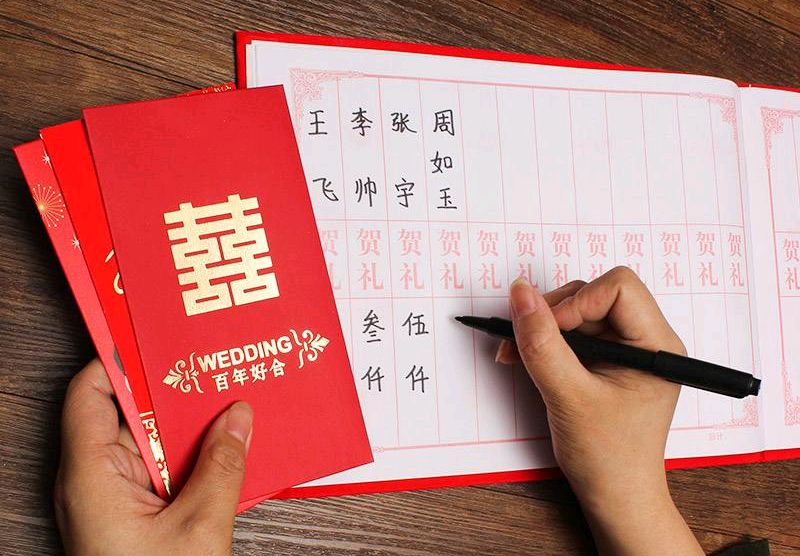 囍
WEDDING
百年好合
王飞
贺礼
李帅
贺礼
叁仟
张宇
贺礼
伍仟
周如玉
贺礼
贺礼
贺礼
贺礼
贺礼
贺礼
贺礼
贺礼
贺礼
贺礼